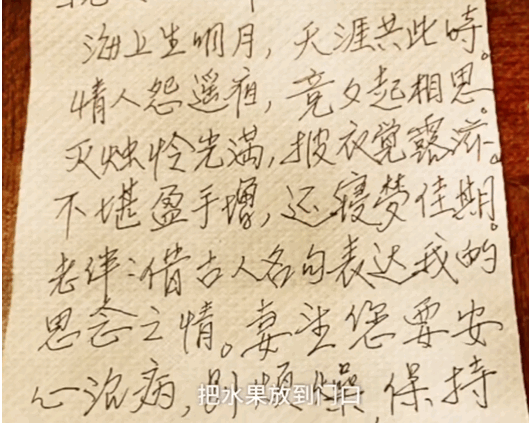 海上生明月，天涯共此时。
情人怨遥夜，竟夕起相思。
灭烛怜光满，披衣觉露滋。
不堪盈手赠，还寝梦佳期。
老伴：借古人名句表达我的
思念之情。妻望您要安
心治病，别烦燥，保持
把水果放到门口